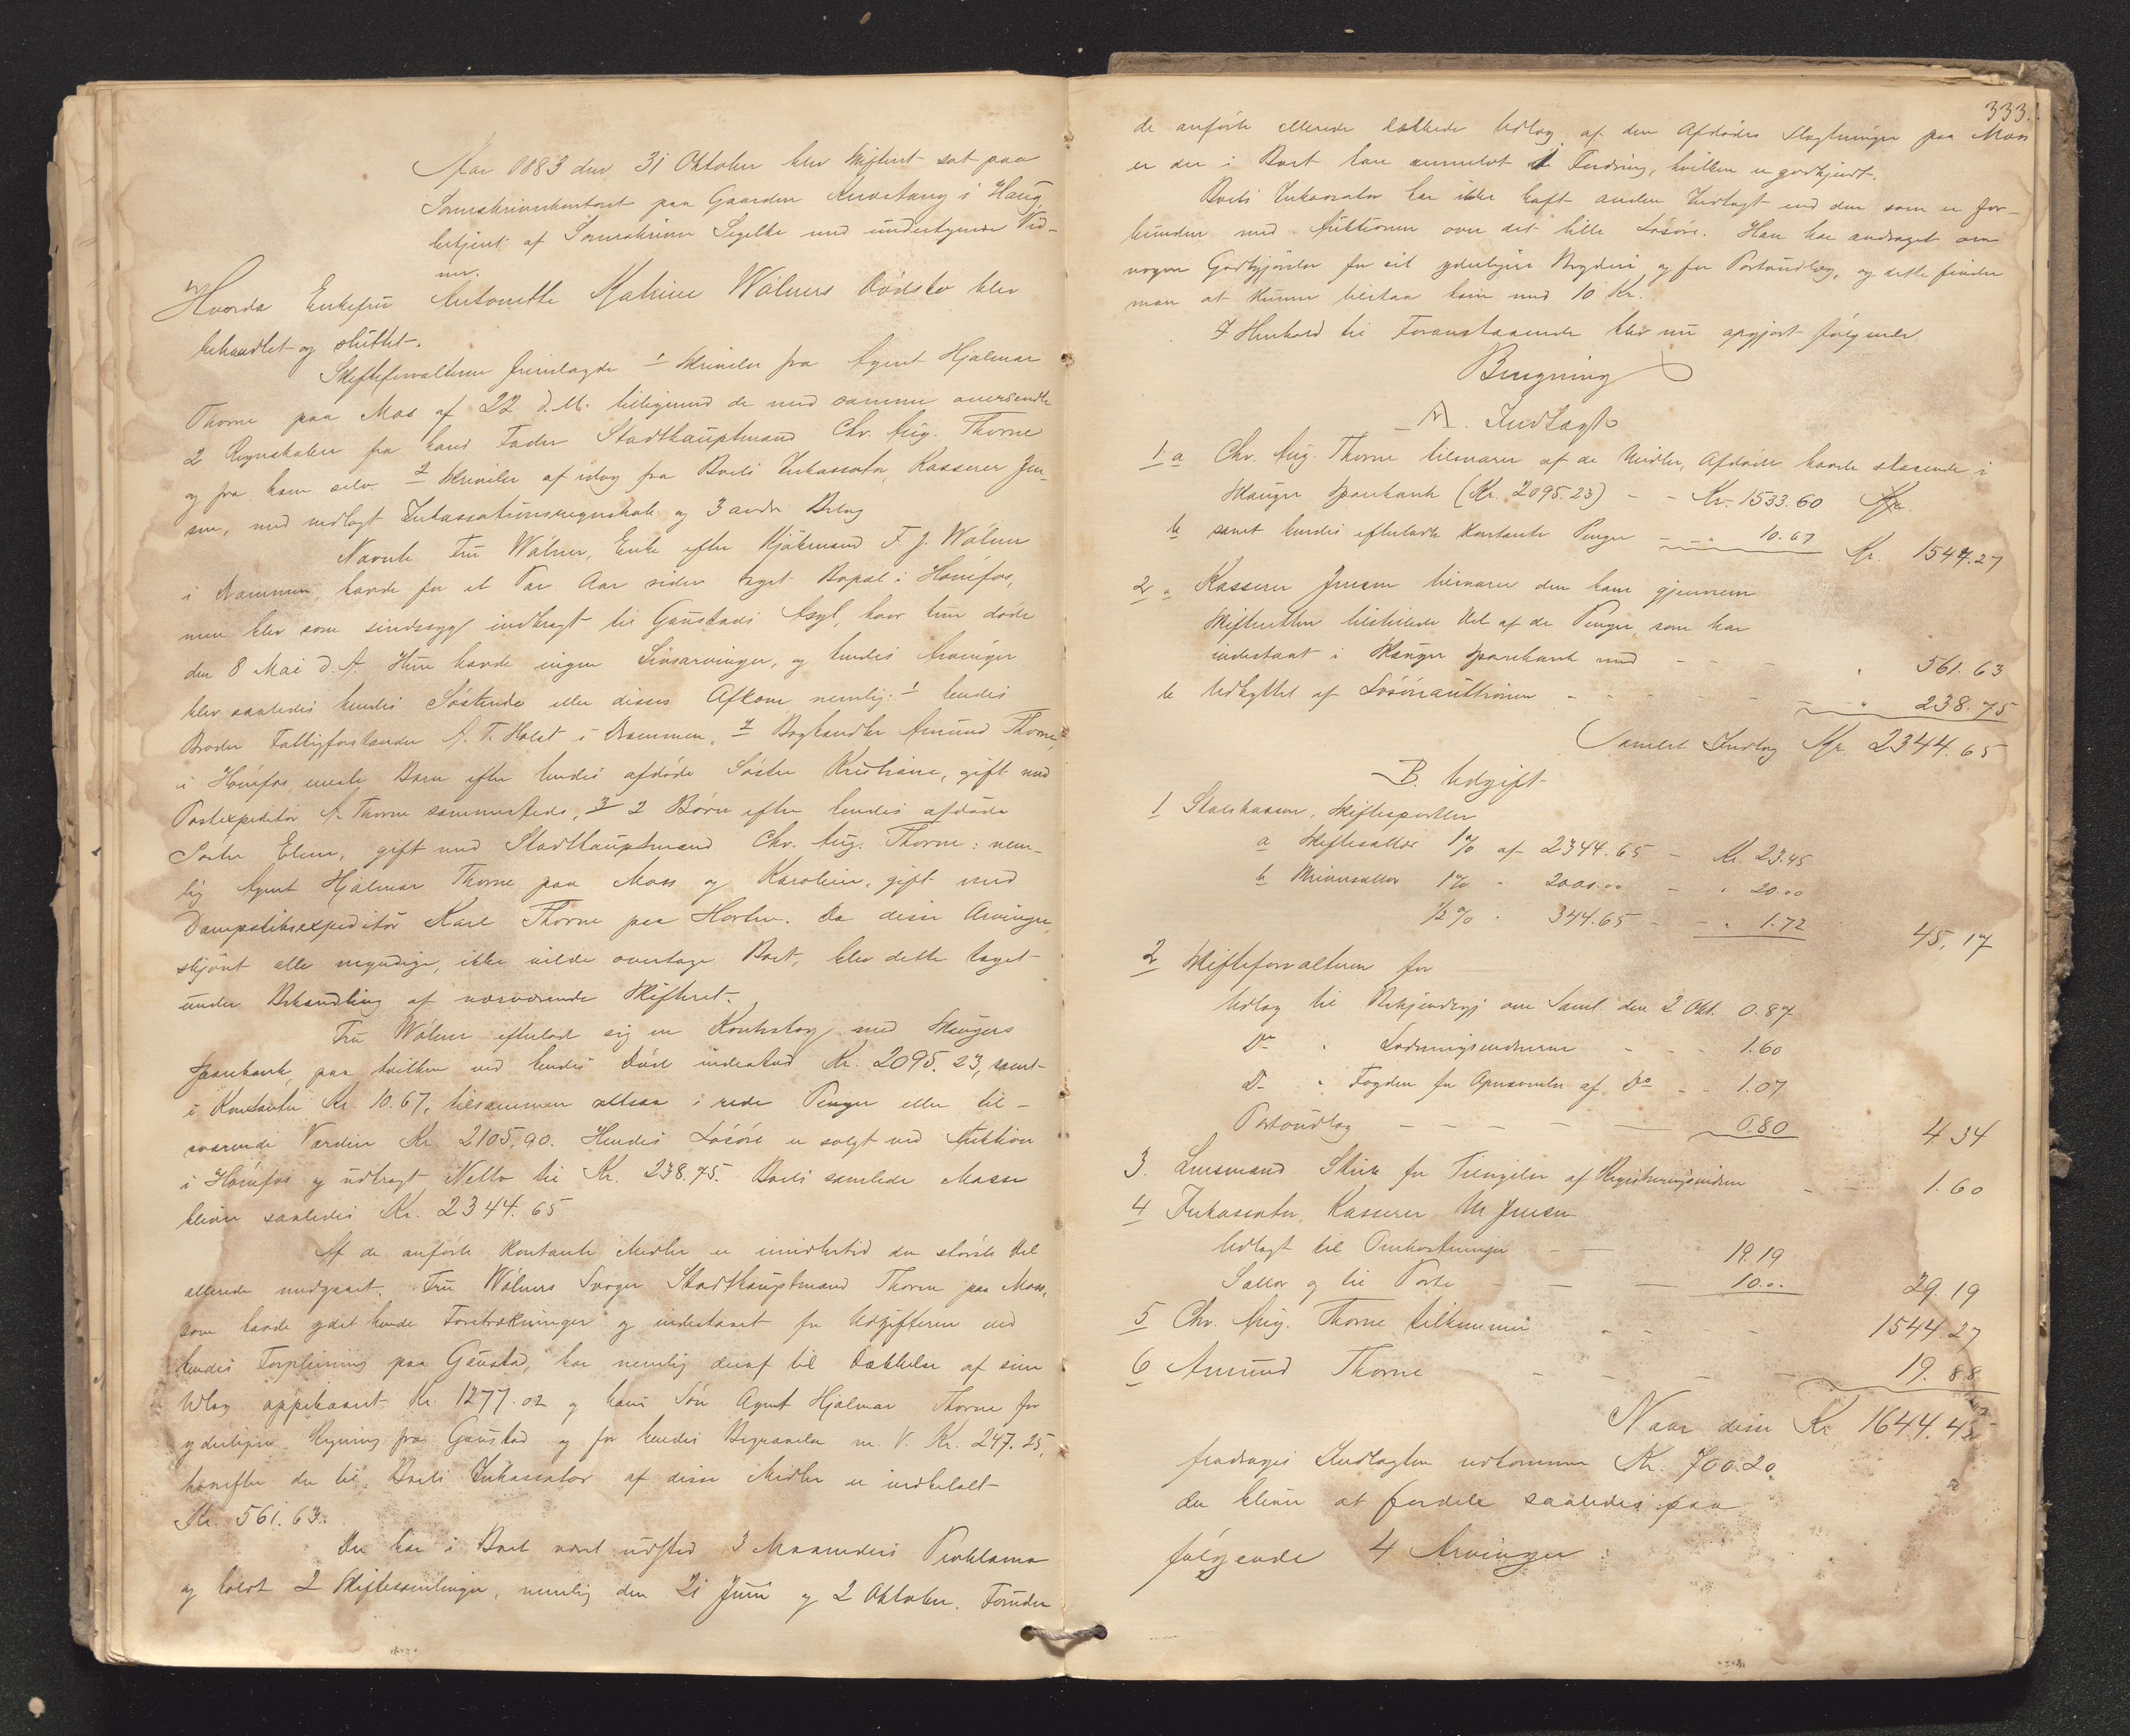 Aar 1883 den 31 Oktober blev Skifteret sat paa
Sorenskriverkontoret paa Gaarden Knestang i Haug,
betjent af Sorenskriver Segelke med undertegnede Vid-
ner.
Hvorda Enkefru Antonette Katrine Wölners Dödsbo blev
behandlet og sluttet.
Skifteforvalteren fremlagde 1 Skrivelse fra Agent Hjalmar
Thorne paa Mos af 22 d.M. tilligemed de med samme oversendte
2 Regnskaber fra hans Fader Stadthauptmand Chr. Aug. Thorne
og fra ham selv. 2 Skrivelse af idag fra Boets Inkassator, Kasserer Jen-
sen, med vedlagt Inkassationsregnskab og 3 andre Bilag
Nævnte Fru Wölner, Enke efter Kjöbmand F. J. Wölner
i Drammen, havde for et Par Aar siden taget Bopæl i Hönefos,
men blev som sindssyg indbragt til Gaustads Asyl, hvor hun döde
den 8 Mai d.A. Hun havde ingen Livsarvinger, og hendes Arvinger
blev saaledes hendes Söskende eller disses Afkom, nemlig: 1 hendes
Broder Fattigforstander A. T. Holst i Drammen, 2 Boghandler Amund Thorne,
i Hönefos, eneste Barn efter hendes afdöde Söster Kristiane, gift med
Postexpeditör A. Thorne sammesteds, 3 2 Börn efter hendes afdöde
Söster Elene, gift med Stadthauptmand Chr. Aug. Thorne: nem-
lig Agent Hjalmar Thorne paa Moss og Karoline, gift med
Dampskibsexpeditör Karl Thorne paa Horten. Da disse Arvinger,
skjönt alle myndige, ikke vilde overtage Boet, blev dette taget
under Behandling af nærværende Skifteret.
Fru Wölner efterlod sig en Kontrabog med Modums
Sparebank, paa hvilken ved hendes Död indestod Kr. 2095.23, samt
i Kontanter Kr. 10.67, tilsammen altsaa i rede Penger eller til-
svarende Værdier Kr. 2105.90. Hendes Lösöre er solgt ved Auktion
i Hönefos og udbragt Netto til Kr. 238.75. Boets samlede Masse
bliver saaledes Kr. 2344.65
Af de anförte kontante Midler er imidlertid den störste Del
allerede medgaaet. Fru Wölners Svoger Stadthauptmand Thorne paa Moss,
som havde ydet hende Forstrækninger og indestaaet for Udgifterne ved
hendes Forpleining paa Gaustad, har nemlig deraf til Dækkelse af sine
Udlæg oppebaaret Kr. 1277.02 og hans Sön Agent Hjalmar Thorne for
yderligere Regning fra Gaustad og for hendes Begravelse m. V. Kr. 247.25,
hvorefter der til Boets Inkassator af disse Midler er indbetalt
Kr. 561.63.
Der har i Boet været udsted 3 Maaneders Proklama
og holdt 2 Skiftesamlinger, nemlig den 21 Juni og 2 Oktober. Foruden
333.
de anförte allerede dækkede Udlæg af den Afdödes Slægtninger paa Moss
er der i Boet bare anmeldt 1 Fordring, hvilken er godkjendt.
Boets Inkassator har ikke haft anden Indtægt end den som er for-
bunden med Auktionen over det lille Lösöre. Han har andraget om
nogen Godtgjörelse for sit yderligere Bryderi og for Portoudlæg, og dette finder
man at kunne tilstaa ham med 10 Kr.
I Henhold til Foranstaaende blev nu opgjort fölgende
Beregning
A. Indtægt
1 a Chr. Aug. Thorne tilsvarer af de Midler, Afdöde havde staaende i
Sparebank (Kr. 2095.23) - - Kr. 1533.60
b samt hendes efterladte kontante Penger - - " 10.67 Kr. 1544.27
2 a Kasserer Jensen tilsvarer den ham gjennem
Skifteretten tilstillede Del af de Penger, som har
indestaaet i Sparebank med - - - " 561.63
b Udbyttet af Lösöreauktionen - - - - - " 238.75
Samlet Indtæg Kr. 2344.65
B. Udgift
1 Statskassen, Skiftesportler
a Skiftesallær 1% af 2344.65 - Kr. 23.45
b Skriversallær 1% - 2000.00 - " 20.00
1/2% " 344.65 - - " 1.72 45.17
2 Skifteforvalteren for
Udlæg til Bekjendtgj om Saml. den 2 Okt. 0.87
Do " Lodningsmændene - - - 1.60
Do " Fogden for Opnævnelse af Do - - 1.07
Portoudlæg - - - - - 0.80 4.34
3. Lensmand for Tilsigelse af Registreringsmænd - - 1.60
4 Inkassator, Kasserer M Jensen
Udlagt til Omkostninger - - 19.19
Sallær og til Porto - - - 10.00 29.19
5 Chr. Aug. Thorne tilkommer - - - - 1544.27
6 Amund Thorne - - - - - 19.88
Naar disse Kr 1644.45
fradrages Indtægten udkommer Kr. 700.20
der bliver at fordele saaledes paa
fölgende 4 Arvinger: